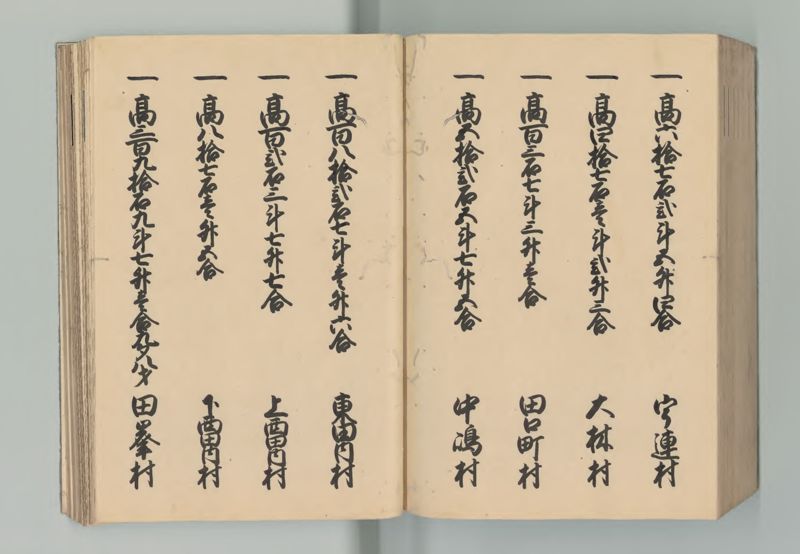 一高六拾七石弐斗五升四合 宇連村
一高四拾七石壱斗弐升三合 大林村
一高百三石七斗三升壱合 田口町村
一高五拾弐石五斗七升五合 中嶋村
一高百八拾弐石七斗壱升六合 東田内村
一高百弐石三斗七升七合 上西田内村
一高八拾七石壱升五合 下西田内村
一高三百九拾石九斗七升壱合五夕八才 田峯村